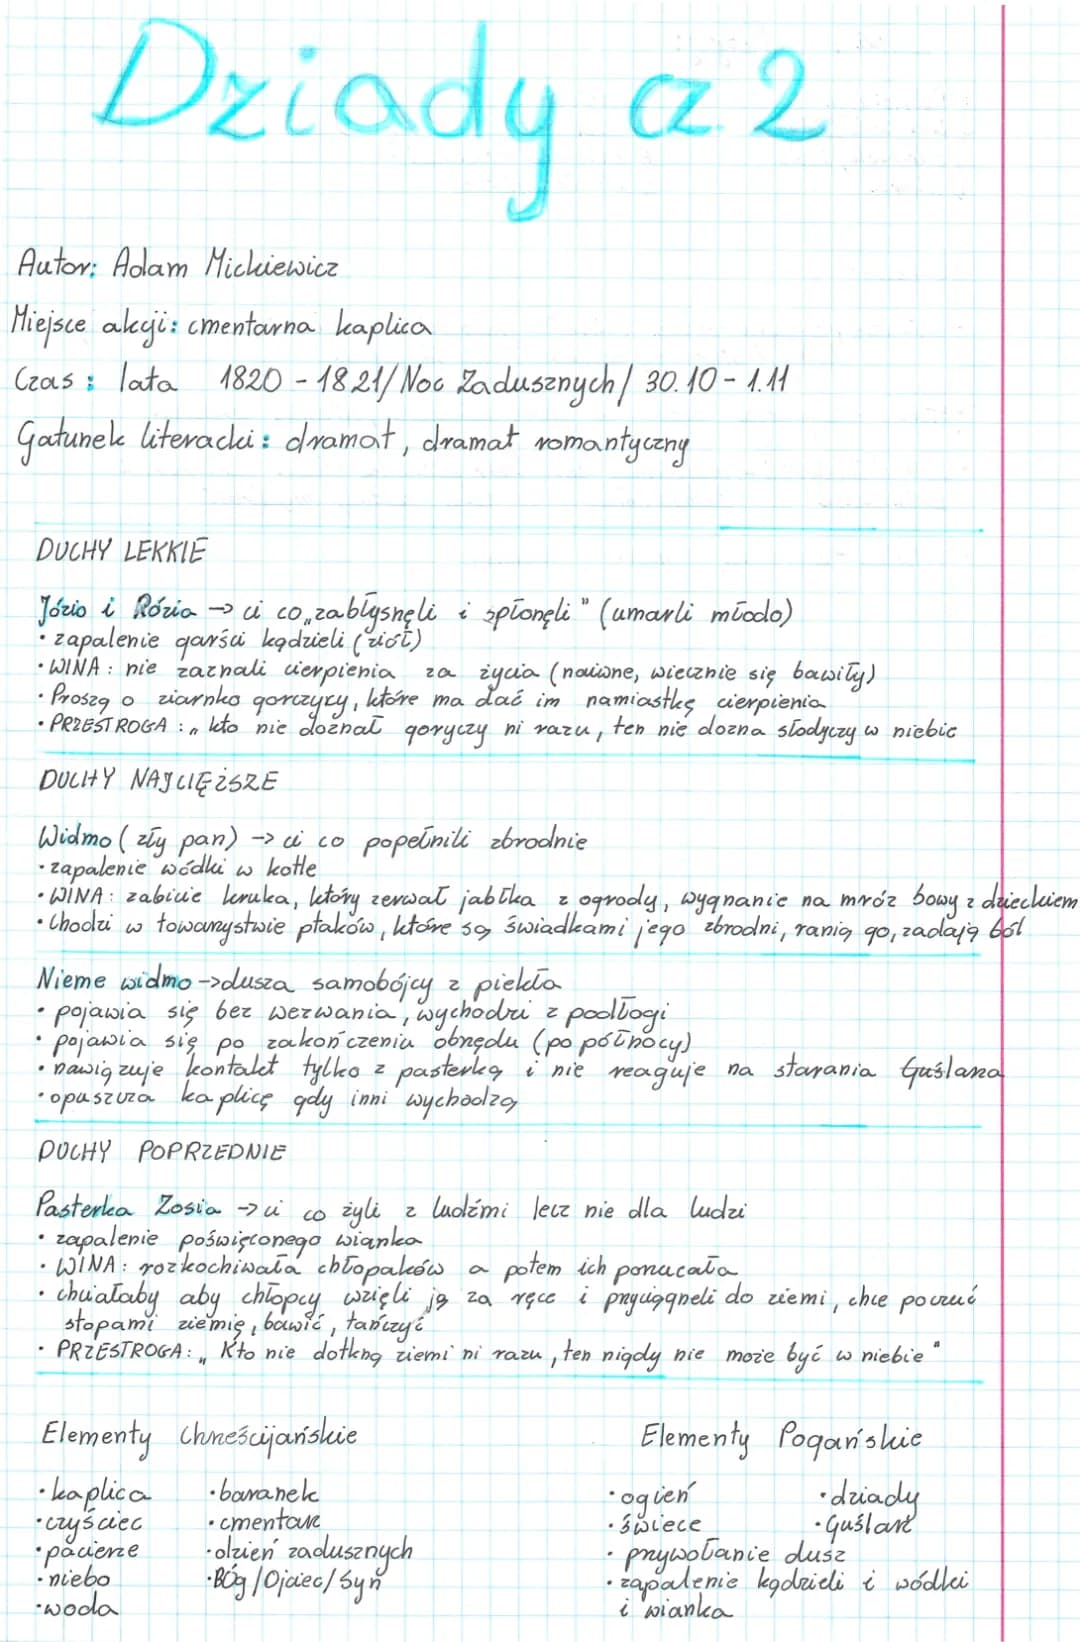 Dziady cz. 2
Autor: Adam Mickiewicz
Miejsce akcji: cmentarna kaplica
Czas: lata 1820 - 1821/ Noc Zadusznych/ 30.10 - 1.11
Gatunek literacki: dramat, dramat romantyczny
DUCHY LEKKIE
Józio i Rózia → ci co „zabłysnęli i spłonęli" (umarli młodo)
• zapalenie garści kądzieli (ziół)
• WINA: nie zaznali cierpienia za życia (naiwne, wiecznie się bawiły)
• Proszą o ziarnko gorczycy, które ma dać im namiastkę cierpienia
• PRZESTROGA: „ kto nie doznał goryczy ni razu, ten nie dozna słodyczy w niebie
DUCHY NAJCIĘŻSZE
Widmo (zły pan) → ci co popełnili zbrodnie
• zapalenie wódki w kotle
• WINA: zabicie kruka, który zerwał jabłka z ogrody, wygnanie na mróz bowy z dzieckiem
• Chodzi w towarzystwie ptaków, które są świadkami jego zbrodni, ranią go, zadają ból
Nieme widmo → dusza samobójcy z piekła
• pojawia się bez wezwania, wychodzi z podłogi
• pojawia się po zakończeniu obrzędu (po północy)
• nawiązuje kontakt tylko z pasterką i nie reaguje na starania Guślarza
• opuszcza kaplicę gdy inni wychodzą
DUCHY POPRZEDNIE
Pasterka Zosia → ci co żyli z ludźmi lecz nie dla ludzi
• zapalenie poświęconego wianka
• WINA: rozkochiwała chłopaków a potem ich porzucała
• chciałaby aby chłopcy wzięli ją za ręce i przyciągneli do ziemi, chce poczuć
stopami ziemię, bawić, tańczyć
• PRZESTROGA: „ Kto nie dotkną ziemi ni razu, ten nigdy nie może być w niebie"
Elementy Chrześcijańskie
• kaplica
• czyściec
• pacierze
• niebo
• woda
• baranek
• cmentarz
• dzień zadusznych
• Bóg/Ojciec/Syn
Elementy Pogańskie
• ogień
• świece
• przywołanie dusz
• zapalenie kądzieli i wódki
i wianka
• dziady
• Guślarz